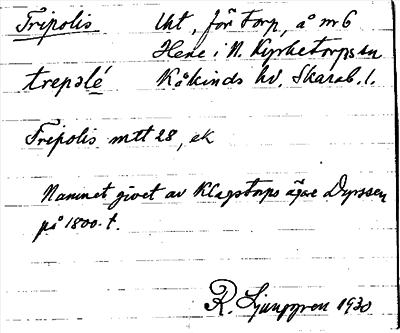 Tripolis Uht, förr torp, å nr 6
Hene i N. Kyrketorps sn
trepolé Kåkinds hd. Skarab. l.
Tripolis mtt 28, ek
Namnet givet av Klagstorps ägare Dyrssen
på 1800-t.
R. Ljunggren 1930